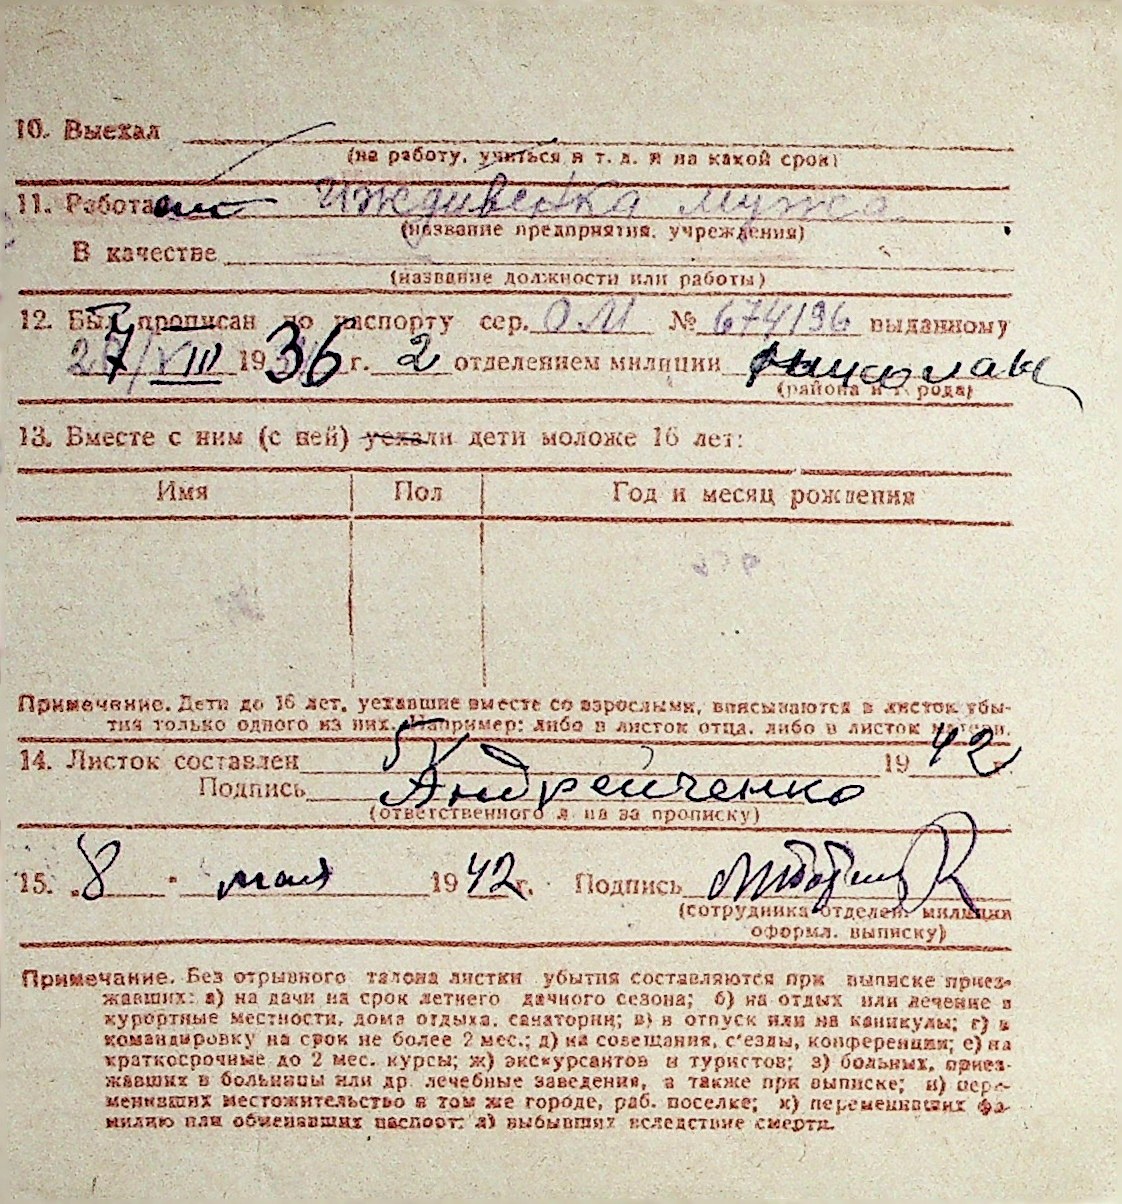 10. Выехал
(на работу, учиться и т. д. и на какой срок)
11. Работает Иждивенка мужа
(название предприятия, учреждения)
В качестве
(название должности или работы)
12. Был прописан по паспорту сер. ОМ № 674196 выданному
VIII 1936 г. 2 отделением милиции
(района и города)
13. Вместе с ним (с ней) уехали дети моложе 16 лет:
Имя Пол Год и месяц рождения
Примечание. Дети до 16 лет, уехавшие вместе со взрослыми, вписываются в листок убы-
тия только одного из них. Например: либо в листок отца, либо в листок матери.
14. Листок составлен 5/V 1942 г.
Подпись Андрейченко
(ответственного л на за прописку)
15. „8" мая 1942 г. Подпись
(сотрудника отделен. милиции
оформл. выписку)
Примечание. Без отрывного талона листки убытия составляются при выписке приез-
жавших: а) на дачи на срок летнего дачного сезона; б) на отдых или лечение в
курортные местности, дома отдыха, санатории; в) в отпуск или на каникулы; г) в
командировку на срок не более 2 мес.; д) на совещания, с'езды, конференции; е) на
краткосрочные до 2 мес. курсы; ж) экскурсантов и туристов; з) больных, приез-
жавших в больницы или др. лечебные заведения, а также при выписке; и) пере-
менивших местожительство в том же городе, раб. поселке; к) переменивших фа-
милию или обменявших паспорт; л) выбывших вследствие смерти.